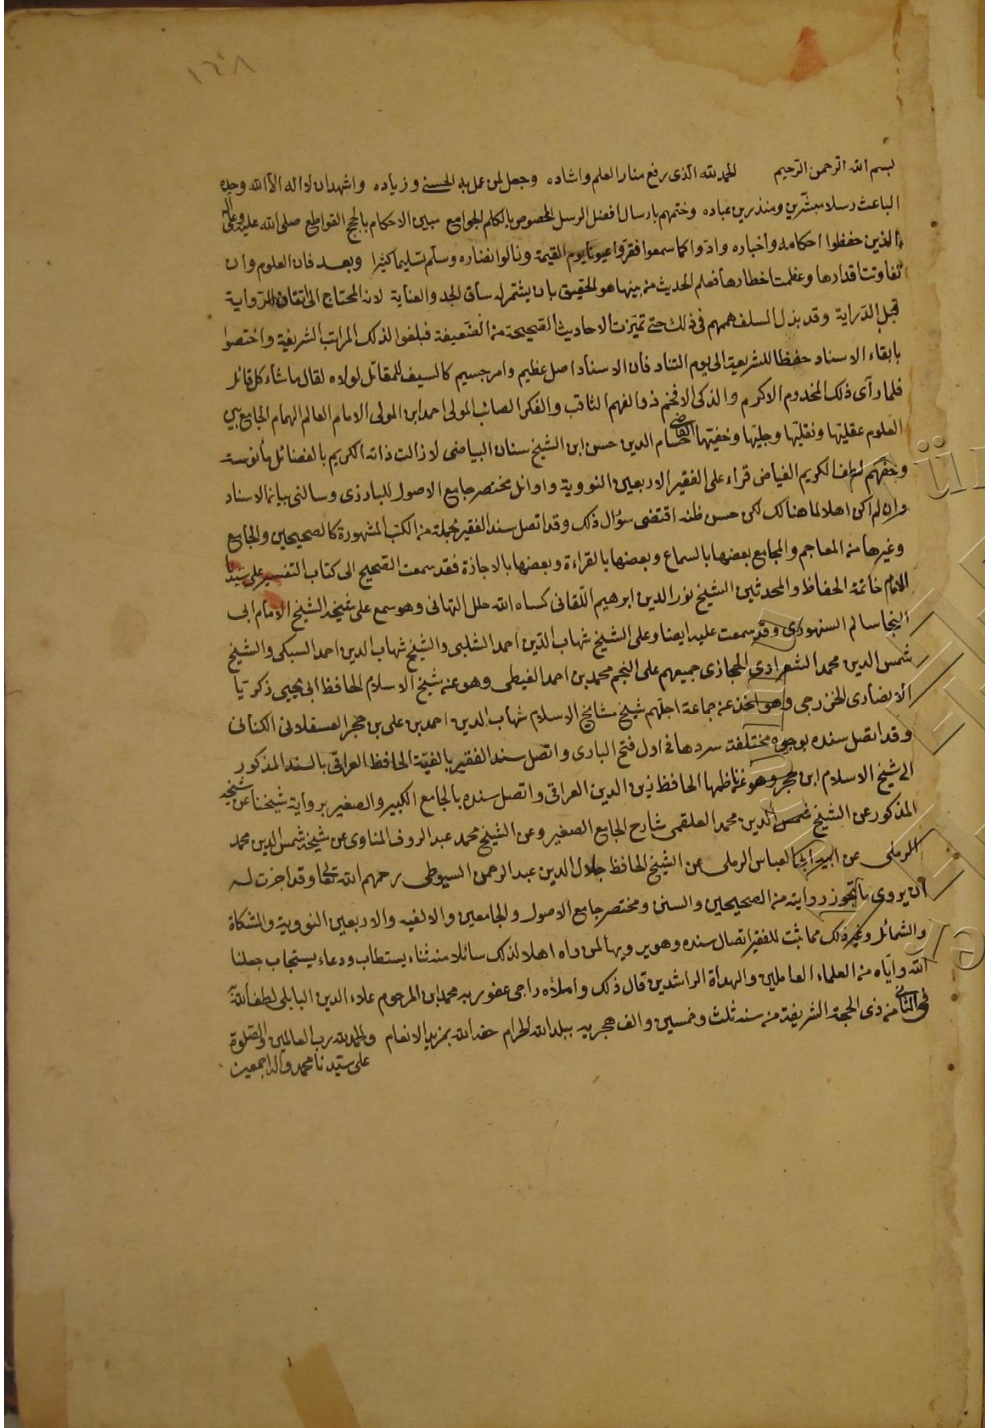 ١٦٨
بسم الله الرحمن الرحيم الحمد لله الذى رفع منار العلم واشاده وجعل لمن عمل به الحسنى وزياده واشهد ان لا اله الا الله وحده
الباعث رسلا مبشرين ومنذرين عباده وختمهم بارسال افضل الرسل المخصوص بالكلم الجوامع مبين الاحكام بالحجج القواطع صلى الله عليه وعلى اله
الذين حفظوا احكامه وأخباره وادّوا كما سمعوا فقرّوا عيونا يوم القيمة ونالوا نضاره وسلّم تسليما كثيرا وبعد فان العلوم وان
تفاوتت اقدارها وعظمت اخطارها فعلم الحديث من بينها هو الحقيق بان يشتمر له ساق الجد والعناية لانه المحتاج الى اتقان الرواية
قبل الدراية وقد بذل السلف هممهم فى ذلك حتى تميّزت الاحاديث الصحيحة من الضعيفة فبلغوا لذلك المراتب الشريفة واختصوا
بابقاء الاسناد حفظا للشريعة الى يوم التناد فان الاسناد اصل عظيم وامر جسيم كالسيف للمقاتل لولاه لقال ما شاء كل قائل
فلما رآى ذلك المخدوم الاكرم والذكى الافخم ذو الفهم الثاقب والفكر الصائب المولى احمد ابن المولى الامام العالم الهمام الجامع بين
العلوم عقليّتها ونقليّتها وجليّها وخفيّها القاضى حسام الدين حسن ابن الشيخ سنان البياضى لا زالت ذاته الكريم بالفضائل مأنوسة
وحفّهم لطف الكريم الفياض قراء على الفقير الاربعين النووية واوائل مختصر جامع الاصول للبارزى وسالنى بيان الاسناد
وان لم اكن اهلا لما هنالك لكن حسن ظنه اقتضى سؤال ذلك وقد اتصل سند الفقير بجملة من الكتب المشهورة كالصحيحين والجامع
وغيرها من المعاجم والمجاميع بعضها بالسماع وبعضها بالقراءة وبعضها بالاجازة فقد سمعت الصحيح الى كتاب التفسير على سيدنا
الامام خاتمة الحفاظ والمحدثين الشيخ نور الدين ابرهيم اللقانى كساه الله حلل التهانى وهو سمع على شيخه الشيخ الامام ابى
النجا سالم السنهورى وقد سمعت عليه ايضا وعلى الشيخ شهاب الدين احمد الشلبى والشيخ شهاب الدين احمد السبكى والشيخ
شمس الدين محمد الشعرادى الحجازى جميعهم على النجم محمد بن احمد الغيطى وهو عن شيخ الاسلام الحافظ ابى يحيى زكريا
الانصارى الخزرجى وهو اخذ عن جماعة اجلّهم شيخ مشائخ الاسلام شهاب الدين احمد بن على بن حجر العسقلانى الكنانى
وقد اتصل سنده بوجوه مختلفة سردها فى اول فتح البارى واتصل سند الفقير بالفيّة الحافظ العراقى بالسند المذكور
الى شيخ الاسلام ابن حجر وهو عن ناظمها الحافظ زين الدين العراقى واتصل سنده بالجامع الكبير والصغير برواية شيخنا عن شيخه
المذكور عن الشيخ شمس الدين محمد العلقمى شارح الجامع الصغير وعن الشيخ محمد عبد الروف المناوى عن شيخه شمس الدين محمد
الرملى عن ابيه ابى العباس الرملى عن الشيخ الحافظ جلال الدين عبد الرحمن السيوطى رحمهم الله تعالى وقد اجزت له
ان يروى ما تجوز روايته من الصحيحين والسنن ومختصر جامع الاصول والجامعين والالفيه والاربعين النووية والمشكاة
والشمائل وغير ذلك مما ثبت للفقير اتصال سنده وهو يرويها لمن راه اهلا لذلك سائلا منه ثناء يستطاب ودعاء يستجاب جعلنا
الله وايّاه من العلماء العاملين والهداة الراشدين قال ذلك واملاه راجى عفو ربه محمد ابن المرحوم علاء الدين البابلى لطف الله
فى الثانى من ذى الحجة الشريفة من سنه ثلث وخمسين والف هجريه ببلد الله الحرام حفه الله بمزيد الانعام والحمد لله رب العالمين والصلوة
على سيّدنا محمد واله اجمعين